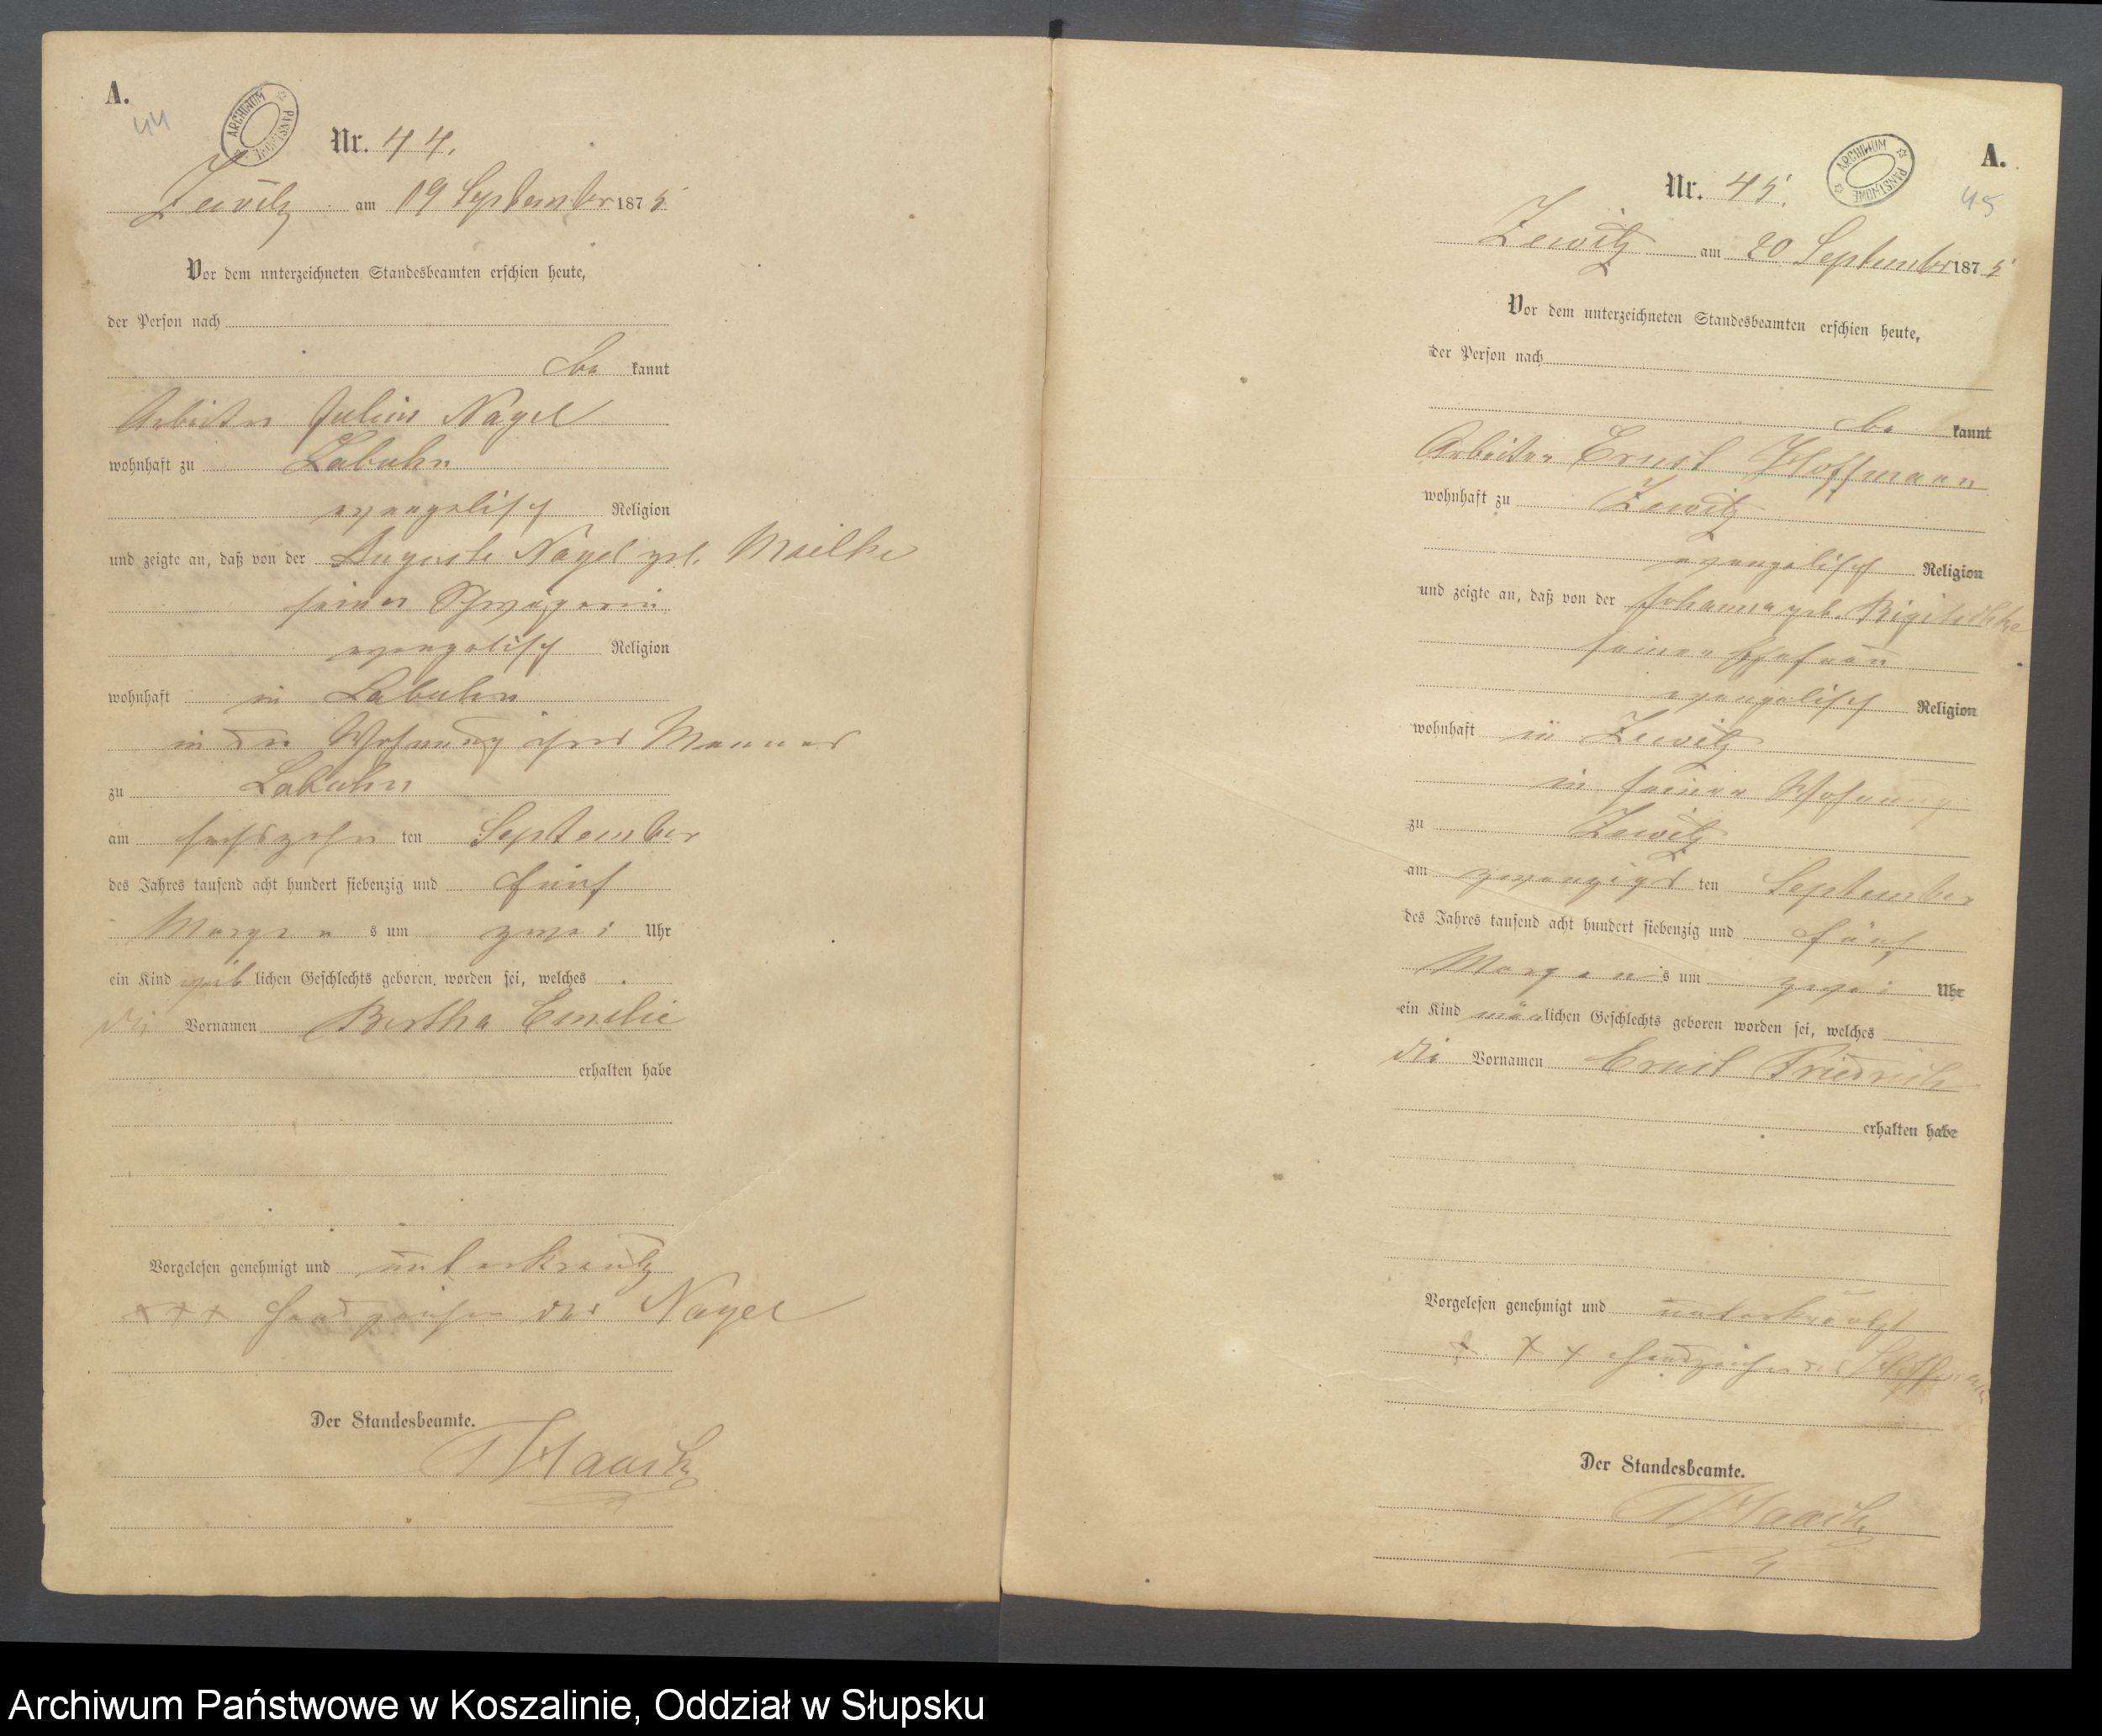 A.
44
ARCHIWUM PAŃSTWOWE
Nr. 44.
Zewitz am 19 September 1875
Vor dem unterzeichneten Standesbeamten erschien heute,
der Person nach
be kannt
Arbeiter Julius Nagel
wohnhaft zu Labuhn
evangelisch Religion
und zeigte an, daß von der Auguste Nagel geb. Mielke
seiner Schwägerin
evangelisch Religion
wohnhaft in Labuhn
in der Wohnung ihres Mannes
zu Labuhn
am sechszehn ten September
des Jahres tausend acht hundert siebenzig und fünf
Morgen s um zwei Uhr
ein Kind weib lichen Geschlechts geboren worden sei, welches
die Vornamen Bertha Emilie
erhalten habe
Vorgelesen genehmigt und unterkreutz
+++ Handzeichen des Nagel
Der Standesbeamte.
Haack
A.
45
ARCHIWUM PAŃSTWOWE
Nr. 45.
Zewitz am 20 September 1875
Vor dem unterzeichneten Standesbeamten erschien heute,
der Person nach
be kannt
Arbeiter Ernst Hoffmann
wohnhaft zu Zewitz
evangelisch Religion
und zeigte an, daß von der Johanna geb.
seiner Ehefrau
evangelisch Religion
wohnhaft in Zewitz
in seiner Wohnung
zu Zewitz
am zwanzigs ten September
des Jahres tausend acht hundert siebenzig und fünf
Morgen s um zwei Uhr
ein Kind män lichen Geschlechts geboren worden sei, welches
die Vornamen Ernst Friedrich
erhalten habe
Vorgelesen genehmigt und unterkreutzt
+ + + Handzeichen des Hoffmann
Der Standesbeamte.
Haack
Archiwum Państwowe w Koszalinie, Oddział w Słupsku